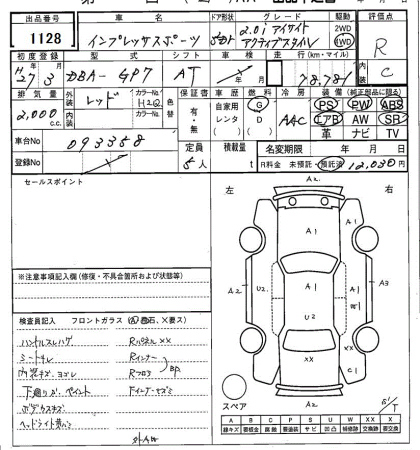 出品番号 車名 ドア形状 グレード 駆動 評価点
1128 インプレッサスポーツ 5ドア 2.0i アイサイト アクティブスタイル 2WD 4WD R
初度登録 型式 シフト 車検 走行(km・マイル) C
H27年3月 DBA-GP7 AT 年 月 78,784
排気量 外装 レッド カラーNo. H2Q 色替 保証書 車歴 燃料 冷房 装備(純正部品に限る)
2,000 c.c. 内装 カラーNo. 有・無 自家用 G D AAC PS PW ABS
エアB AW SR
革 ナビ TV
車台No 093358 定員 積載量 名変期限 年 月 日
登録No 5人 t R料金 未預託・預託済 12,030円
セールスポイント
左 右
A2
A2 U2 A1 A1 A3
U2
XX XX
C1
A2
※注意事項記入欄(修復・不具合箇所および状態等)
検査員記入 フロントガラス(A、飛石、X要ス)
ハンドルスレハゲ Rパネル XX
シートキレ Rインナー
内装キズ、ヨゴレ Rフロア
下廻りサビ、ペイント
ボデウスキズ
ヘッドライト黄バミ
外A困
スペア
A B C P S U W X XX
線キズ 腐蝕 要塗装 サビ 凹凸 補修跡 要交換 交換済